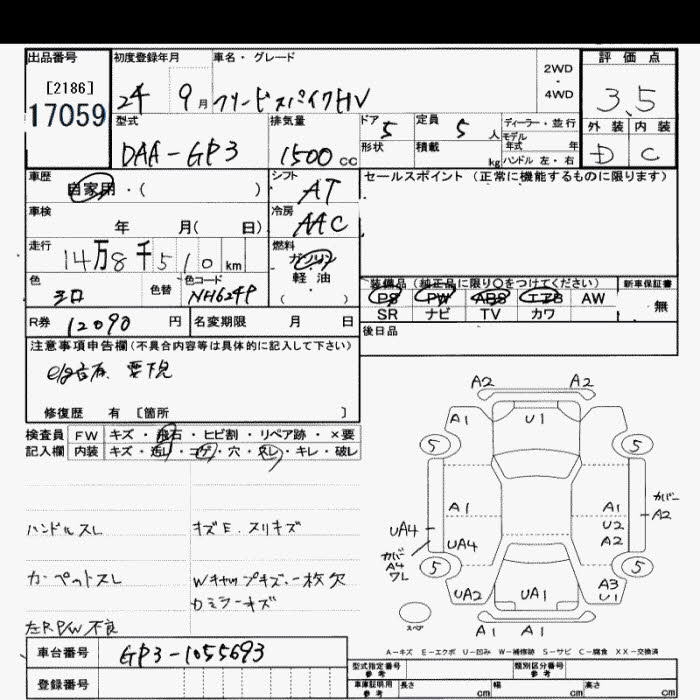 出品番号 初度登録年月 車名・グレード 2WD・4WD 評価点
[2186]
17059
24 9月 フリードスパイクHV 3.5
型式 排気量 ドア 定員 ディーラー・並行 外装 内装
DAA-GP3 1500cc 5 5人 モデル年式 年 D C
形状 積載 kg ハンドル 左・右
車歴 シフト セールスポイント(正常に機能するものに限ります)
自家用・( ) AT
車検 冷房
年 月( 日) AAC
走行 燃料
14万8千510km ガソリン
軽・油
色 色替 色コード ( . )
クロ NH624P
装備品(純正品に限り〇をつけてください) 新車保証書
PS PW ABS エアB AW 無
SR ナビ TV カワ
R券 12090円 名変期限 月 日
後日品
注意事項申告欄(不具合内容等は具体的に記入して下さい)
e/g音有 要下見
修復歴 有 [箇所 ]
検査員 FW キズ・飛石・ヒビ割・リペア跡・×要
記入欄 内装 キズ・汚レ・コゲ・穴・スレ・キレ・破レ
ハンドルスレ キズE.スリキズ
カーペットスレ Wキャップキズ、一枚欠
カミラーキズ
左R P/W不良
A2 A2
A1 U1 A1
5 5
A1 A1 カバー
U2 A2
UA4 UA4 A2
カバー
A4
ワレ
5 5
UA2 UA1 A3
U1
スペア A1 A1
A-キズ E-エクボ U-凹み W-補修跡 S-サビ C-腐食 XX-交換済
車台番号 GP3-1055693
型式指定番号 参考 類別区分番号 参考
登録番号 車庫証明用 参考 長さ cm 幅 cm 高さ cm